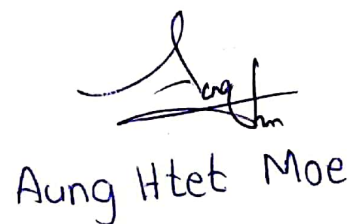 Aung Htet Moe